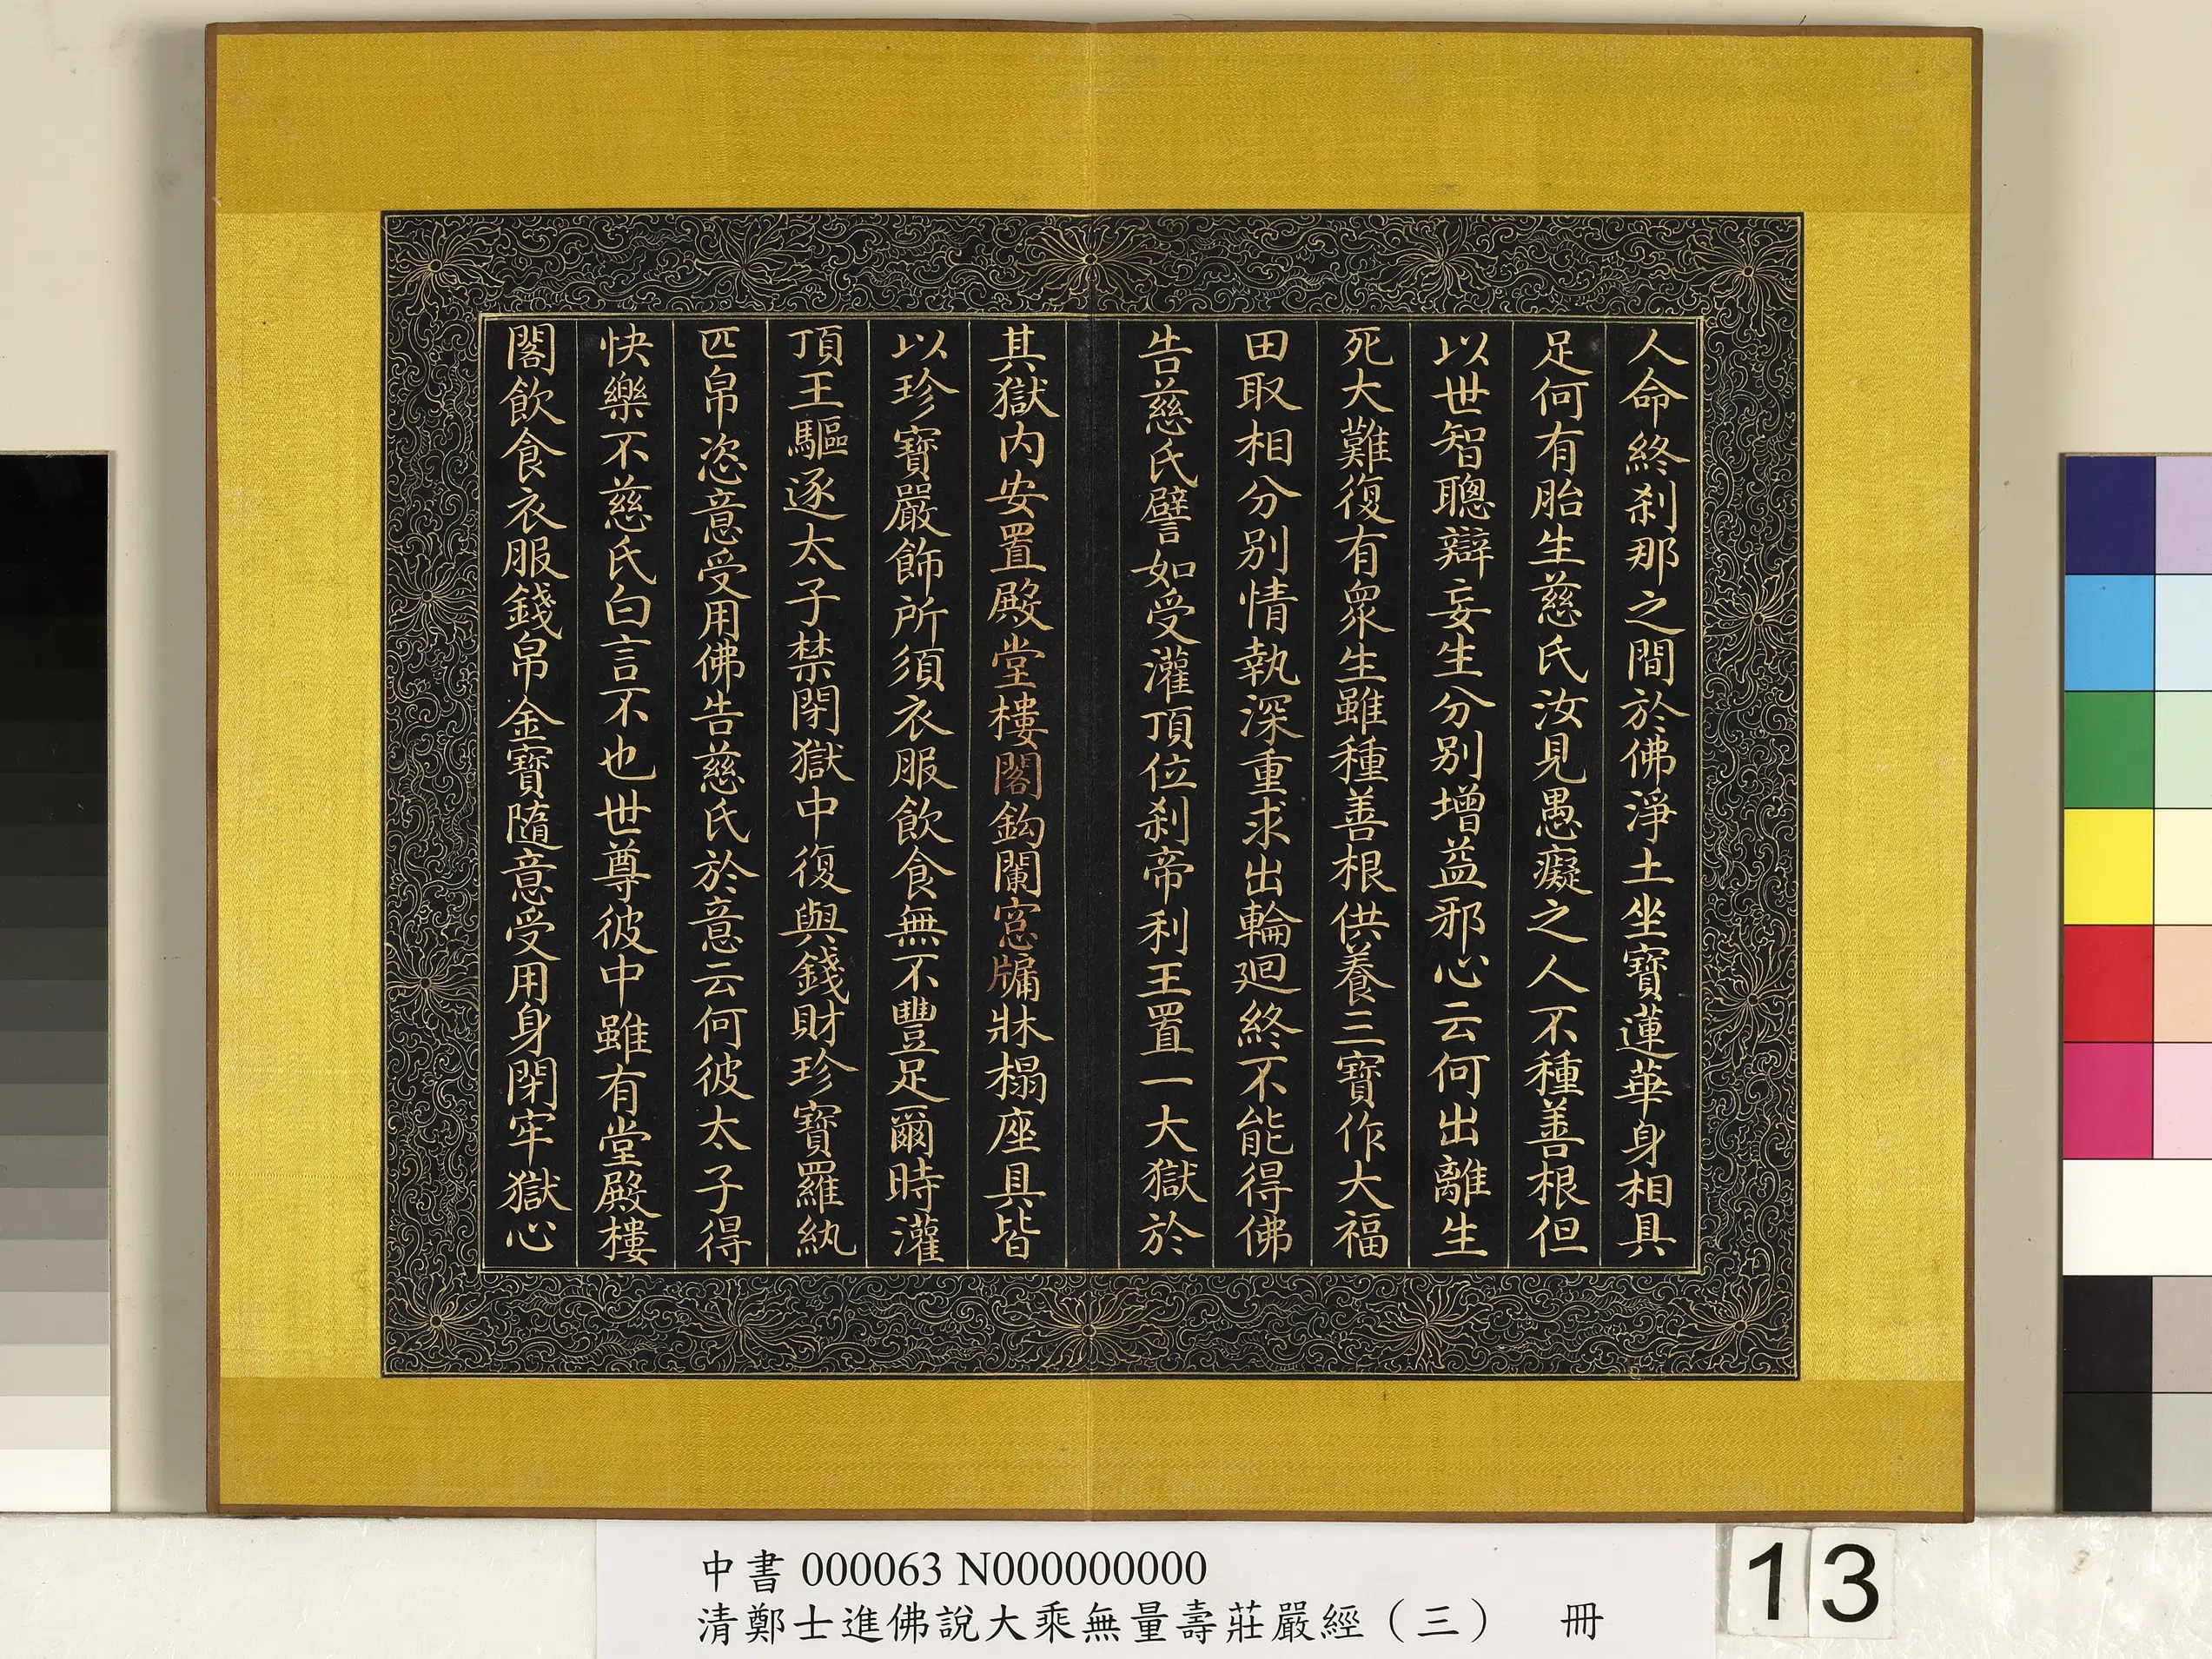 人命終刹那之間於佛淨土坐寶蓮華身相具
足何有胎生慈氏汝見愚癡之人不種善根但
以世智聰辯妄生分別增益邪心云何出離生
死大難復有眾生雖種善根供養三寶作大福
田取相分別情執深重求出輪廻終不能得佛
告慈氏譬如受灌頂位刹帝利王置一大獄於
其獄內安置殿堂樓閣鈎闌窓牖牀榻座具皆
以珍寶嚴飾所須衣服飲食無不豐足爾時灌
頂王驅逐太子禁閉獄中復與錢財珍寶羅紈
匹帛恣意受用佛告慈氏於意云何彼太子得
快樂不慈氏白言不也世尊彼中雖有堂殿樓
閣飲食衣服錢帛金寶隨意受用身閉牢獄心
中書 000063 N000000000
清鄭士進佛說大乘無量壽莊嚴經（三） 冊
13